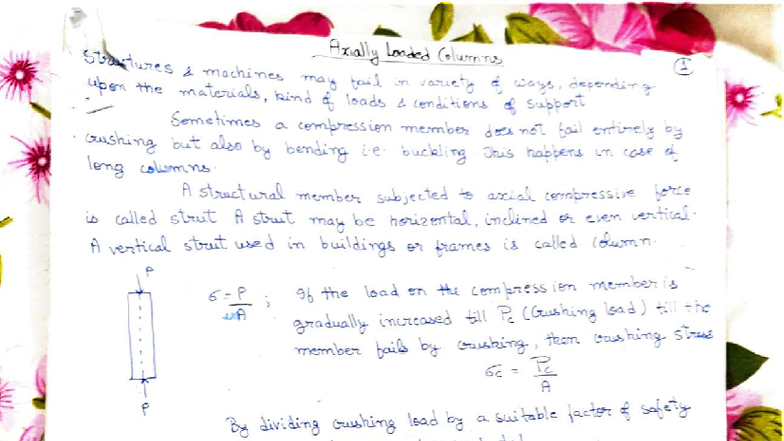 Axially Loaded Columns
1
Structures & machines may fail in variety of ways, depending
upon the materials, kind of loads & conditions of support
Sometimes a compression member does not fail entirely by
crushing but also by bending i.e. buckling This happens in case of
long columns.
A structural member subjected to axial compressive force
is called strut. A strut may be horizontal, inclined or even vertical.
A vertical strut used in buildings or frames is called column.
P
σ = P/A ; If the load on the compression member is
gradually increased till Pc (Crushing load) till the
member fails by crushing, then crushing stress
σc = Pc/A
P
By dividing crushing load by a suitable factor of safety